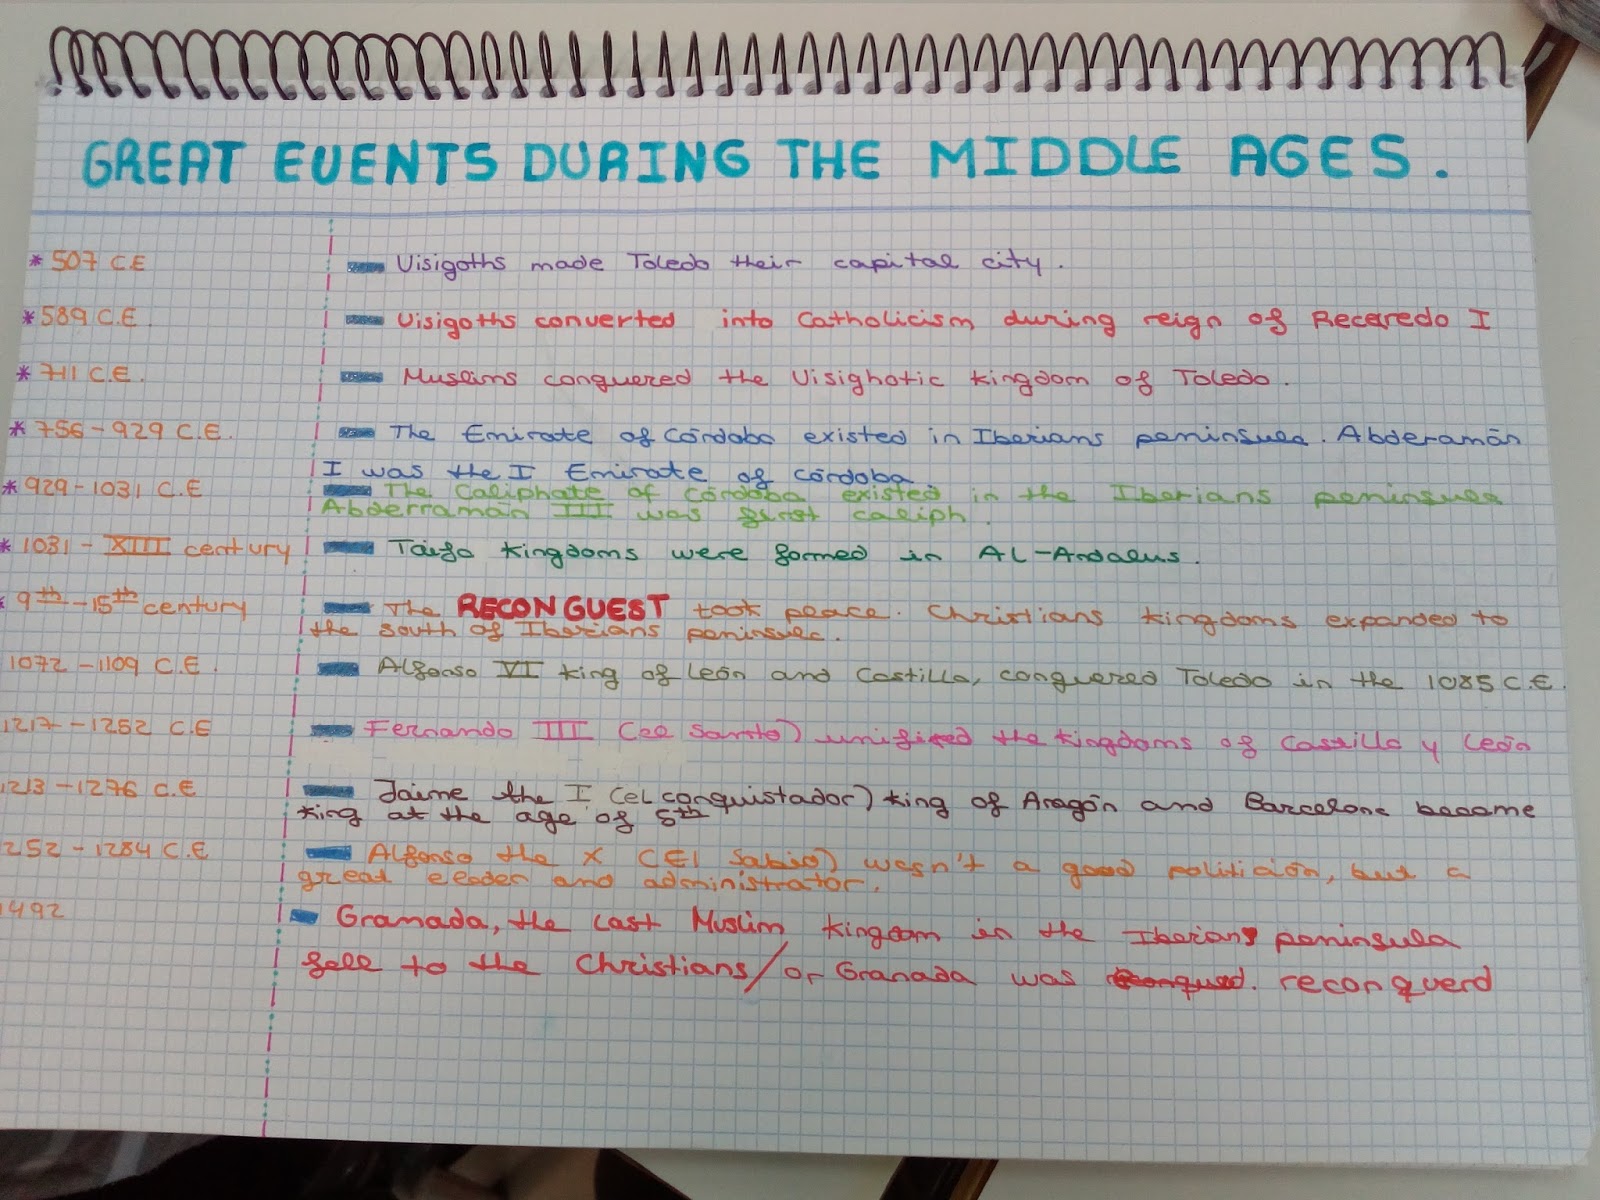 GREAT EVENTS DURING THE MIDDLE AGES.
* 507 C.E - Visigoths made Toledo their capital city.
* 589 C.E. - Visigoths converted into Catholicism during reign of Recaredo I
* 711 C.E. - Muslims conquered the Visighotic kingdom of Toledo.
* 756-929 C.E. - The Emirate of Córdoba existed in Iberians peninsula. Abderamán
I was the I Emirate of Córdoba
* 929-1031 C.E - The Caliphate of Córdoba existed in the Iberians peninsula
Abderramán III was first caliph.
* 1031 - XIII century - Taifa kingdoms were formed in AL-Andalus.
* 9th-15th century - The RECONGUEST took place. Christians kingdoms expanded to
the south of Iberians peninsula.
1072-1109 C.E. - Alfonso VI king of León and Castilla, conquered Toledo in the 1085 C.E.
1217-1252 C.E - Fernando III (el Santo) unified the kingdoms of Castilla y León
1213-1276 C.E - Jaime the I (el conquistador) king of Aragón and Barcelona became
king at the age of 5th
252-1284 C.E - Alfonso the X (El Sabio) wasn't a good politición, but a
great leader and administrator.
1492 - Granada, the last Muslim kingdom in the Iberians peninsula
fell to the Christians/or Granada was reconquerd